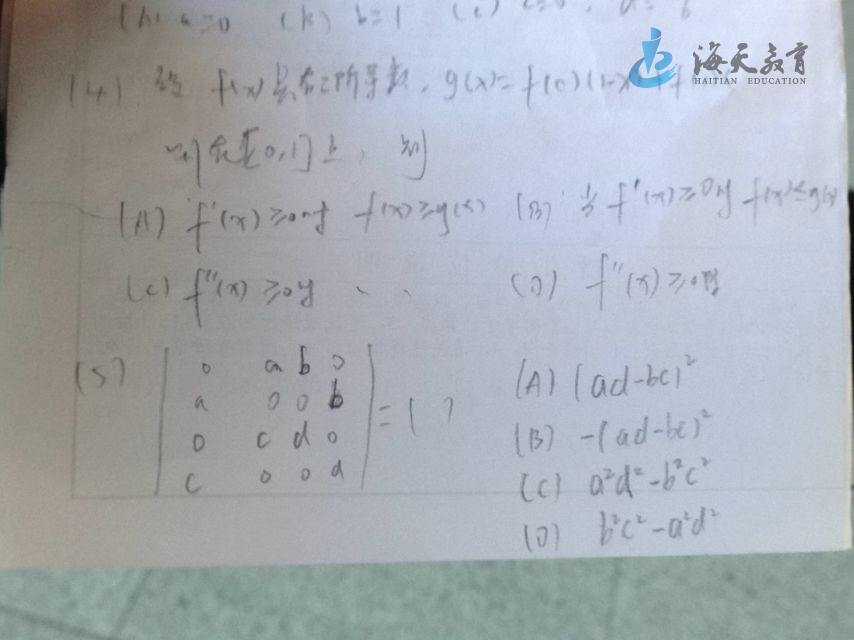 (A) a=0 (B) b=1 (C) c=0, d=
海天教育
HAITIAN EDUCATION
(4) 设 f(x)具有2阶导数, g(x)=f(0)(1-x)+f
则在[0,1]上, 则
(A) f'(x)≥0时 f(x)≥g(x) (B) 当f'(x)≥0时 f(x)≤g(x)
(C) f''(x)≥0时 、、 (D) f''(x)≥0时
(5) | 0 a b 0 | (A) (ad-bc)²
| a 0 0 b | = ( ) (B) -(ad-bc)²
| 0 c d 0 | (C) a²d²-b²c²
| c 0 0 d | (D) b²c²-a²d²